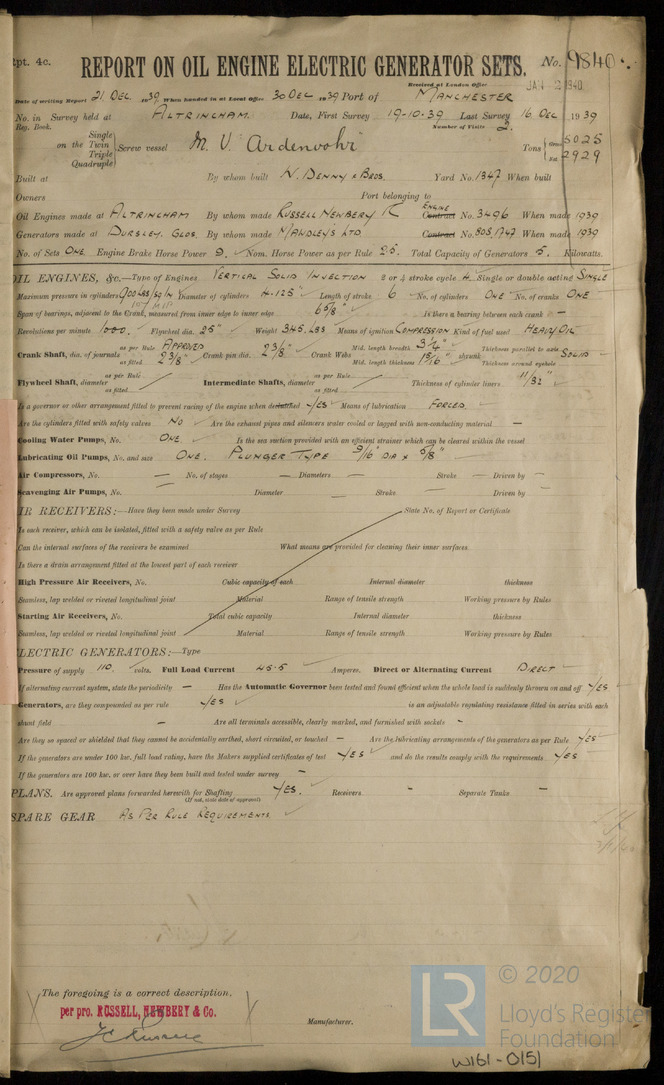 Rpt. 4c. REPORT ON OIL ENGINE ELECTRIC GENERATOR SETS. No. 9840
Received at London Office JAN -2 1940
Date of writing Report 21 DEC. 1939 When handed in at Local Office 30 DEC 1939 Port of MANCHESTER
No. in Survey held at ALTRINCHAM. Date, First Survey 19-10-39 Last Survey 16 DEC 1939
Reg. Book. Number of Visits 2.
Single
on the Twin Screw vessel M.V. "Ardenvohr" Tons Gross 5025
Triple Net 2929
Quadruple
Built at By whom built W. DENNY & BROS. Yard No. 1347 When built
Owners Port belonging to
Oil Engines made at ALTRINCHAM By whom made RUSSELL NEWBERY Contract ENGINE No. 3496 When made 1939
Generators made at DURSLEY, GLOS. By whom made MAWDLEYS LTD Contract No. 808,1747 When made 1939
No. of Sets ONE Engine Brake Horse Power 9. Nom. Horse Power as per Rule 2.5. Total Capacity of Generators 5. Kilowatts.
OIL ENGINES, &c.—Type of Engines VERTICAL SOLID INJECTION 2 or 4 stroke cycle 4 Single or double acting SINGLE
Maximum pressure in cylinders 900 LBS/SQ IN Diameter of cylinders 4.125" Length of stroke 6 No. of cylinders ONE No. of cranks ONE
Span of bearings, adjacent to the Crank, measured from inner edge to inner edge 6 5/8" Is there a bearing between each crank —
Revolutions per minute 1000. Flywheel dia. 25" Weight 345 LBS Means of ignition COMPRESSION Kind of fuel used HEAVY OIL
Crank Shaft, dia. of journals as per Rule APPROVED as fitted 2 3/8" Crank pin dia. 2 3/8" Crank Webs Mid. length breadth 3 1/4" Mid. length thickness 1 5/16" shrunk Thickness parallel to axis Thickness around eyehole SOLID
Flywheel Shaft, diameter as per Rule as fitted Intermediate Shafts, diameter as per Rule as fitted Thickness of cylinder liners 11/32"
Is a governor or other arrangement fitted to prevent racing of the engine when declutched YES Means of lubrication FORCED
Are the cylinders fitted with safety valves NO Are the exhaust pipes and silencers water cooled or lagged with non-conducting material —
Cooling Water Pumps, No. ONE Is the sea suction provided with an efficient strainer which can be cleared within the vessel
Lubricating Oil Pumps, No. and size ONE. PLUNGER TYPE 9/16" DIA x 5/8"
Air Compressors, No. — No. of stages — Diameters — Stroke — Driven by —
Scavenging Air Pumps, No. — Diameter — Stroke — Driven by —
AIR RECEIVERS:—Have they been made under Survey State No. of Report or Certificate
Is each receiver, which can be isolated, fitted with a safety valve as per Rule
Can the internal surfaces of the receivers be examined What means are provided for cleaning their inner surfaces
Is there a drain arrangement fitted at the lowest part of each receiver
High Pressure Air Receivers, No. Cubic capacity of each Internal diameter thickness
Seamless, lap welded or riveted longitudinal joint Material Range of tensile strength Working pressure by Rules
Starting Air Receivers, No. Total cubic capacity Internal diameter thickness
Seamless, lap welded or riveted longitudinal joint Material Range of tensile strength Working pressure by Rules
ELECTRIC GENERATORS:—Type
Pressure of supply 110. volts. Full Load Current 45.5 Amperes. Direct or Alternating Current DIRECT
If alternating current system, state the periodicity — Has the Automatic Governor been tested and found efficient when the whole load is suddenly thrown on and off YES
Generators, are they compounded as per rule YES is an adjustable regulating resistance fitted in series with each
shunt field — Are all terminals accessible, clearly marked, and furnished with sockets -
Are they so spaced or shielded that they cannot be accidentally earthed, short circuited, or touched — Are the lubricating arrangements of the generators as per Rule YES
If the generators are under 100 kw. full load rating, have the Makers supplied certificates of test YES and do the results comply with the requirements YES
If the generators are 100 kw. or over have they been built and tested under survey —
PLANS. Are approved plans forwarded herewith for Shafting YES. Receivers - Separate Tanks -
(If not, state date of approval)
SPARE GEAR AS PER RULE REQUIREMENTS
The foregoing is a correct description.
per pro. RUSSELL, NEWBERY & Co.
Manufacturer.
LR © 2020
Lloyd's Register
Foundation
W161-0151